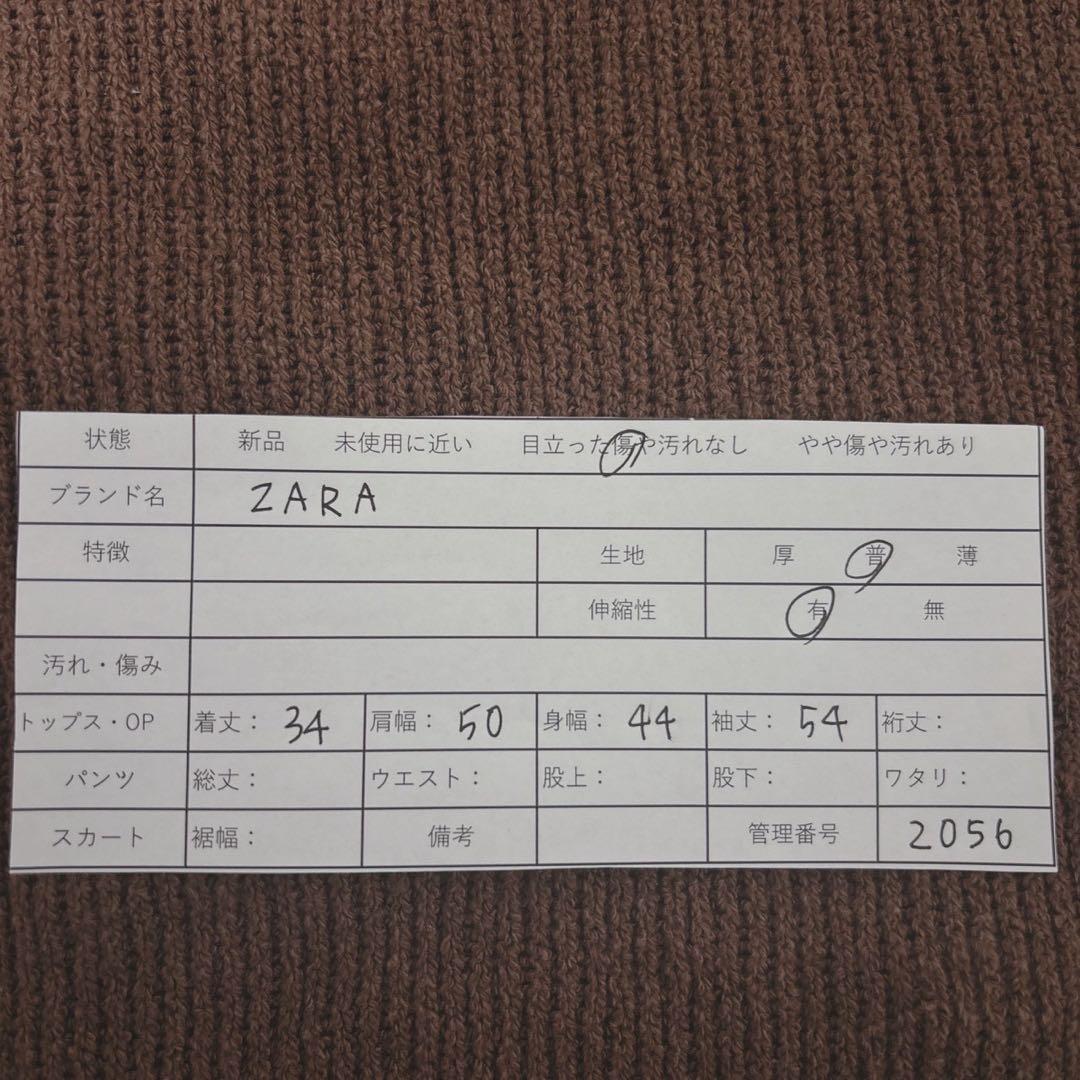 状態 新品 未使用に近い 目立った傷や汚れなし やや傷や汚れあり
ブランド名 ZARA
特徴 生地 厚 普 薄
伸縮性 有 無
汚れ・傷み
トップス・OP 着丈： 34 肩幅： 50 身幅： 44 袖丈： 54 裄丈：
パンツ 総丈： ウエスト： 股上： 股下： ワタリ：
スカート 裾幅： 備考 管理番号 2056